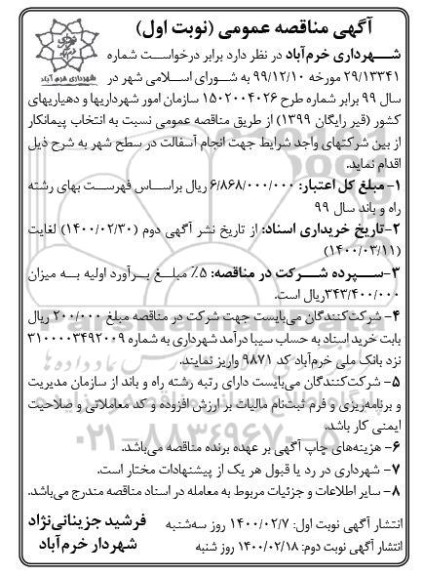 آگهی مناقصه عمومی (نوبت اول)
شهرداری خرم آباد
شهرداری خرم‌آباد در نظر دارد برابر درخواست شماره
۲۹/۱۳۳۴۱ مورخه ۹۹/۱۲/۱۰ به شورای اسلامی شهر در
سال ۹۹ برابر شماره طرح ۱۵۰۲۰۰۴۰۲۶ سازمان امور شهرداریها و دهیاریهای
کشور (قیر رایگان ۱۳۹۹) از طریق مناقصه عمومی نسبت به انتخاب پیمانکار
از بین شرکتهای واجد شرایط جهت انجام آسفالت در سطح شهر به شرح ذیل
اقدام نماید.
۱- مبلغ کل اعتبار: ۶/۸۶۸/۰۰۰/۰۰۰ ریال براساس فهرست بهای رشته
راه و باند سال ۹۹
۲-تاریخ خریداری اسناد: از تاریخ نشر آگهی دوم (۱۴۰۰/۰۲/۳۰) لغایت
(۱۴۰۰/۰۳/۱۱)
۳-سپرده شرکت در مناقصه: ۵٪ مبلغ برآورد اولیه به میزان
۳۴۳/۴۰۰/۰۰۰ریال است.
۴- شرکت‌کنندگان می‌بایست جهت شرکت در مناقصه مبلغ ۲۰۰/۰۰۰ ریال
بابت خرید اسناد به حساب سیبا درآمد شهرداری به شماره ۳۱۰۰۰۰۳۴۹۲۰۰۹
نزد بانک ملی خرم‌آباد کد ۹۸۷۱ واریز نمایند.
۵- شرکت‌کنندگان می‌بایست دارای رتبه رشته راه و باند از سازمان مدیریت
و برنامه‌ریزی و فرم ثبت‌نام مالیات بر ارزش افزوده و کد معاملاتی و صلاحیت
ایمنی کار باشد.
۶- هزینه‌های چاپ آگهی بر عهده برنده مناقصه می‌باشد.
۷- شهرداری در رد یا قبول هر یک از پیشنهادات مختار است.
۸- سایر اطلاعات و جزئیات مربوط به معامله در اسناد مناقصه مندرج می‌باشد.
انتشار آگهی نوبت اول: ۱۴۰۰/۰۲/۷ روز سه‌شنبه
انتشار آگهی نوبت دوم: ۱۴۰۰/۰۲/۱۸ روز شنبه
فرشید جزینانی‌نژاد
شهردار خرم‌آباد
۰۲۱-۸۸۳۴۹۶۷۰-۵